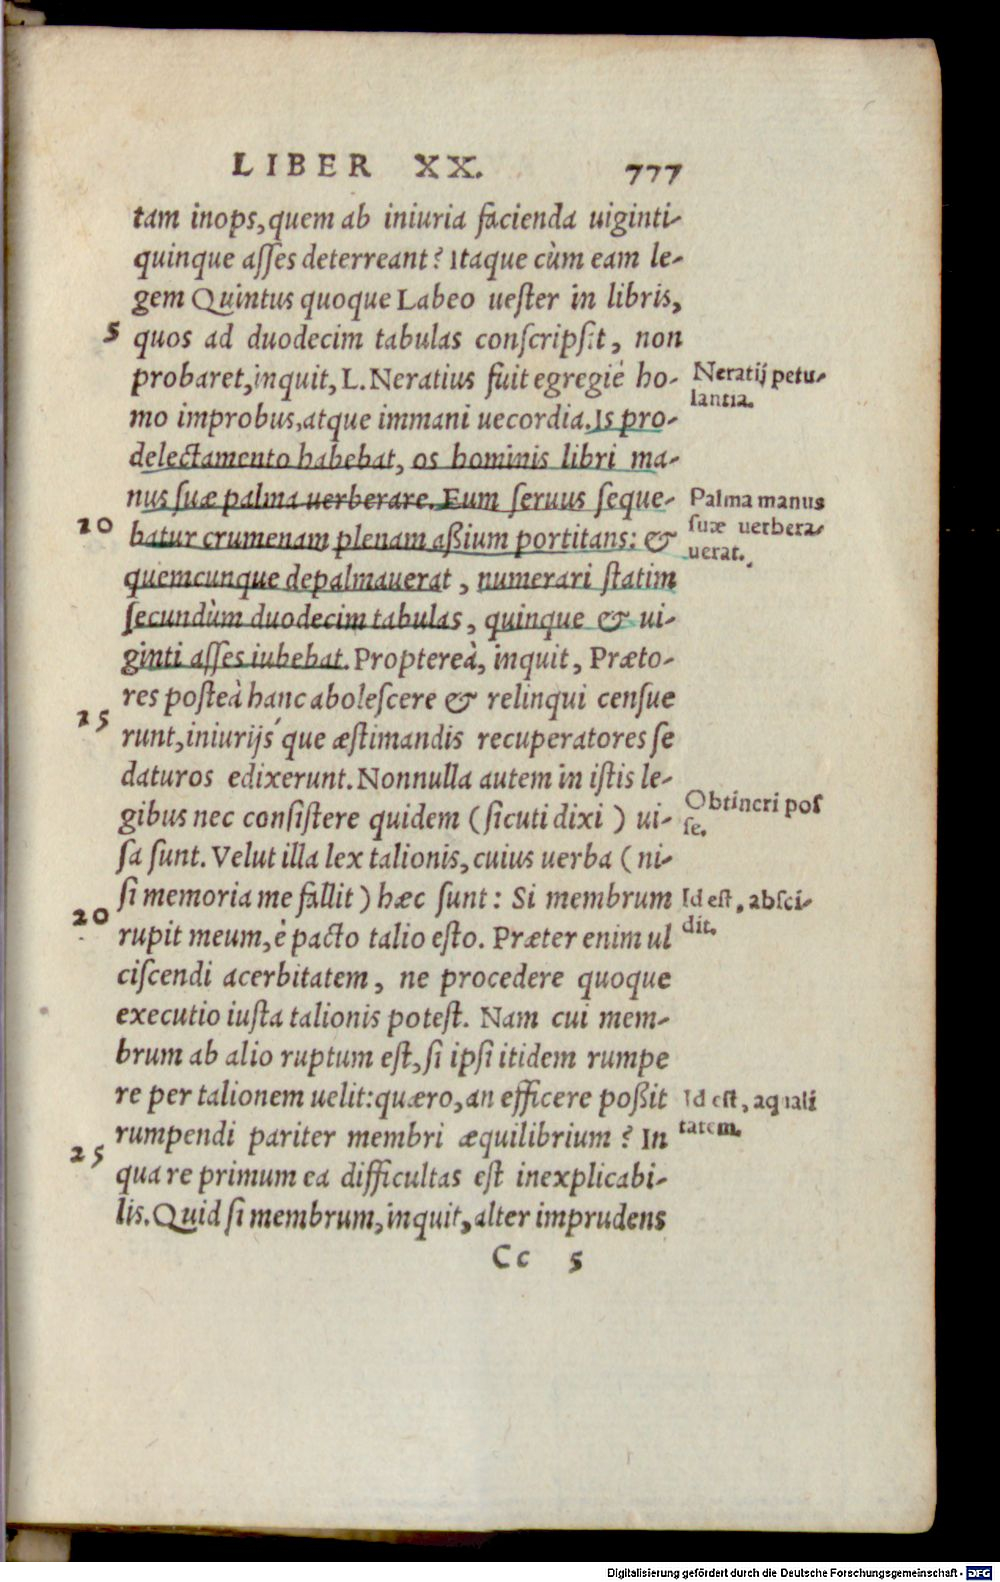 LIBER XX. 777
tam inops, quem ab iniuria facienda uiginti-
quinque asſes deterreant? Itaque cùm eam le-
gem Quintus quoque Labeo ueſter in libris,
5 quos ad duodecim tabulas conſcripſit, non
probaret, inquit, L. Neratius fuit egregiè ho-
Neratij petu-
lantia.
mo improbus, atque immani uecordia. Is pro-
delectamento habebat, os hominis libri ma-
nus ſuæ palma uerberare. Eum ſeruus ſeque-
Palma manus
ſuæ uerbera-
uerat.
10 batur crumenam plenam aßium portitans: &
quemcunque depalmauerat, numerari ſtatim
ſecundùm duodecim tabulas, quinque & ui-
ginti aſſes iubebat. Propterea, inquit, Præto-
res poſteà hanc aboleſcere & relinqui cenſue
25 runt, iniurijś que æſtimandis recuperatores ſe
daturos edixerunt. Nonnulla autem in iſtis le-
gibus nec conſiſtere quidem (ſicuti dixi) ui-
Obtineri poſ
ſe.
ſa ſunt. Velut illa lex talionis, cuius uerba (ni-
ſi memoria me fallit) hæc ſunt: Si membrum
Id eſt, abſci-
dit.
20 rupit meum, è pacto talio eſto. Præter enim ul
ciſcendi acerbitatem, ne procedere quoque
executio iuſta talionis poteſt. Nam cui mem-
brum ab alio ruptum eſt, ſi ipſi itidem rumpe
re per talionem uelit: quæro, an efficere poßit
Id eſt, æquali
tatem.
rumpendi pariter membri æquilibrium? In
25 qua re primum ea difficultas eſt inexplicabi-
lis. Quid ſi membrum, inquit, alter imprudens
Cc 5
Digitalisierung gefördert durch die Deutsche Forschungsgemeinschaft - DFG